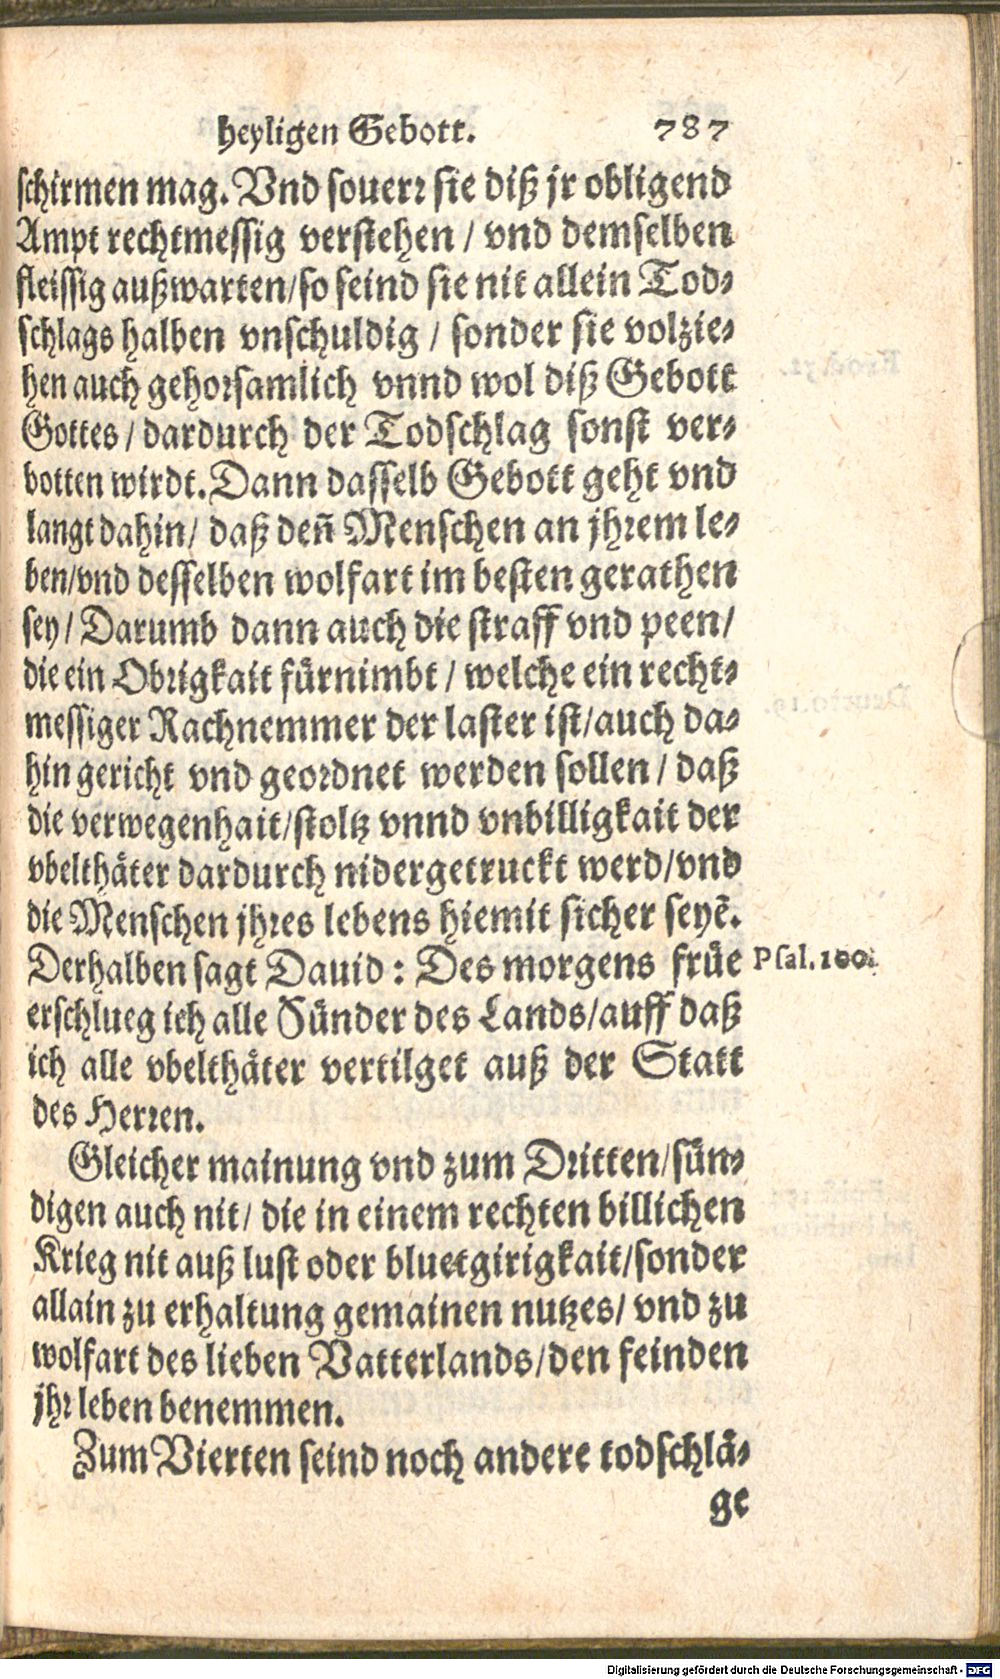 heyligen Gebott. 787
schirmen mag. Vnd souerr sie diß jr obligend
Ampt rechtmessig verstehen / vnd demselben
fleissig außwarten/so seind sie nit allein Tod⸗
schlags halben vnschuldig / sonder sie volzie⸗
hen auch gehorsamlich vnnd wol diß Gebott
Gottes / dardurch der Todschlag sonst ver⸗
botten wirdt. Dann dasselb Gebott geht vnd
langt dahin/ daß den̄ Menschen an jhrem le⸗
ben/vnd desselben wolfart im besten gerathen
sey / Darumb dann auch die straff vnd peen/
die ein Obrigkait fürnimbt / welche ein recht⸗
messiger Rachnemmer der laster ist/auch da⸗
hin gericht vnd geordnet werden sollen / daß
die verwegenhait/stoltz vnnd vnbilligkait der
vbelthäter dardurch nidergetruckt werd/vnd
die Menschen jhres lebens hiemit sicher seyē.
Derhalben sagt Dauid : Des morgens früe Psal. 100.
erschlueg ich alle Sünder des Lands/auff daß
ich alle vbelthäter vertilget auß der Statt
des Herren.
Gleicher mainung vnd zum Dritten/sün⸗
digen auch nit/ die in einem rechten billichen
Krieg nit auß lust oder bluetgirigkait/sonder
allain zu erhaltung gemainen nutzes/ vnd zu
wolfart des lieben Vatterlands/den feinden
jhr leben benemmen.
Zum Vierten seind noch andere todschlä⸗
ge
Digitalisierung gefördert durch die Deutsche Forschungsgemeinschaft - DFG